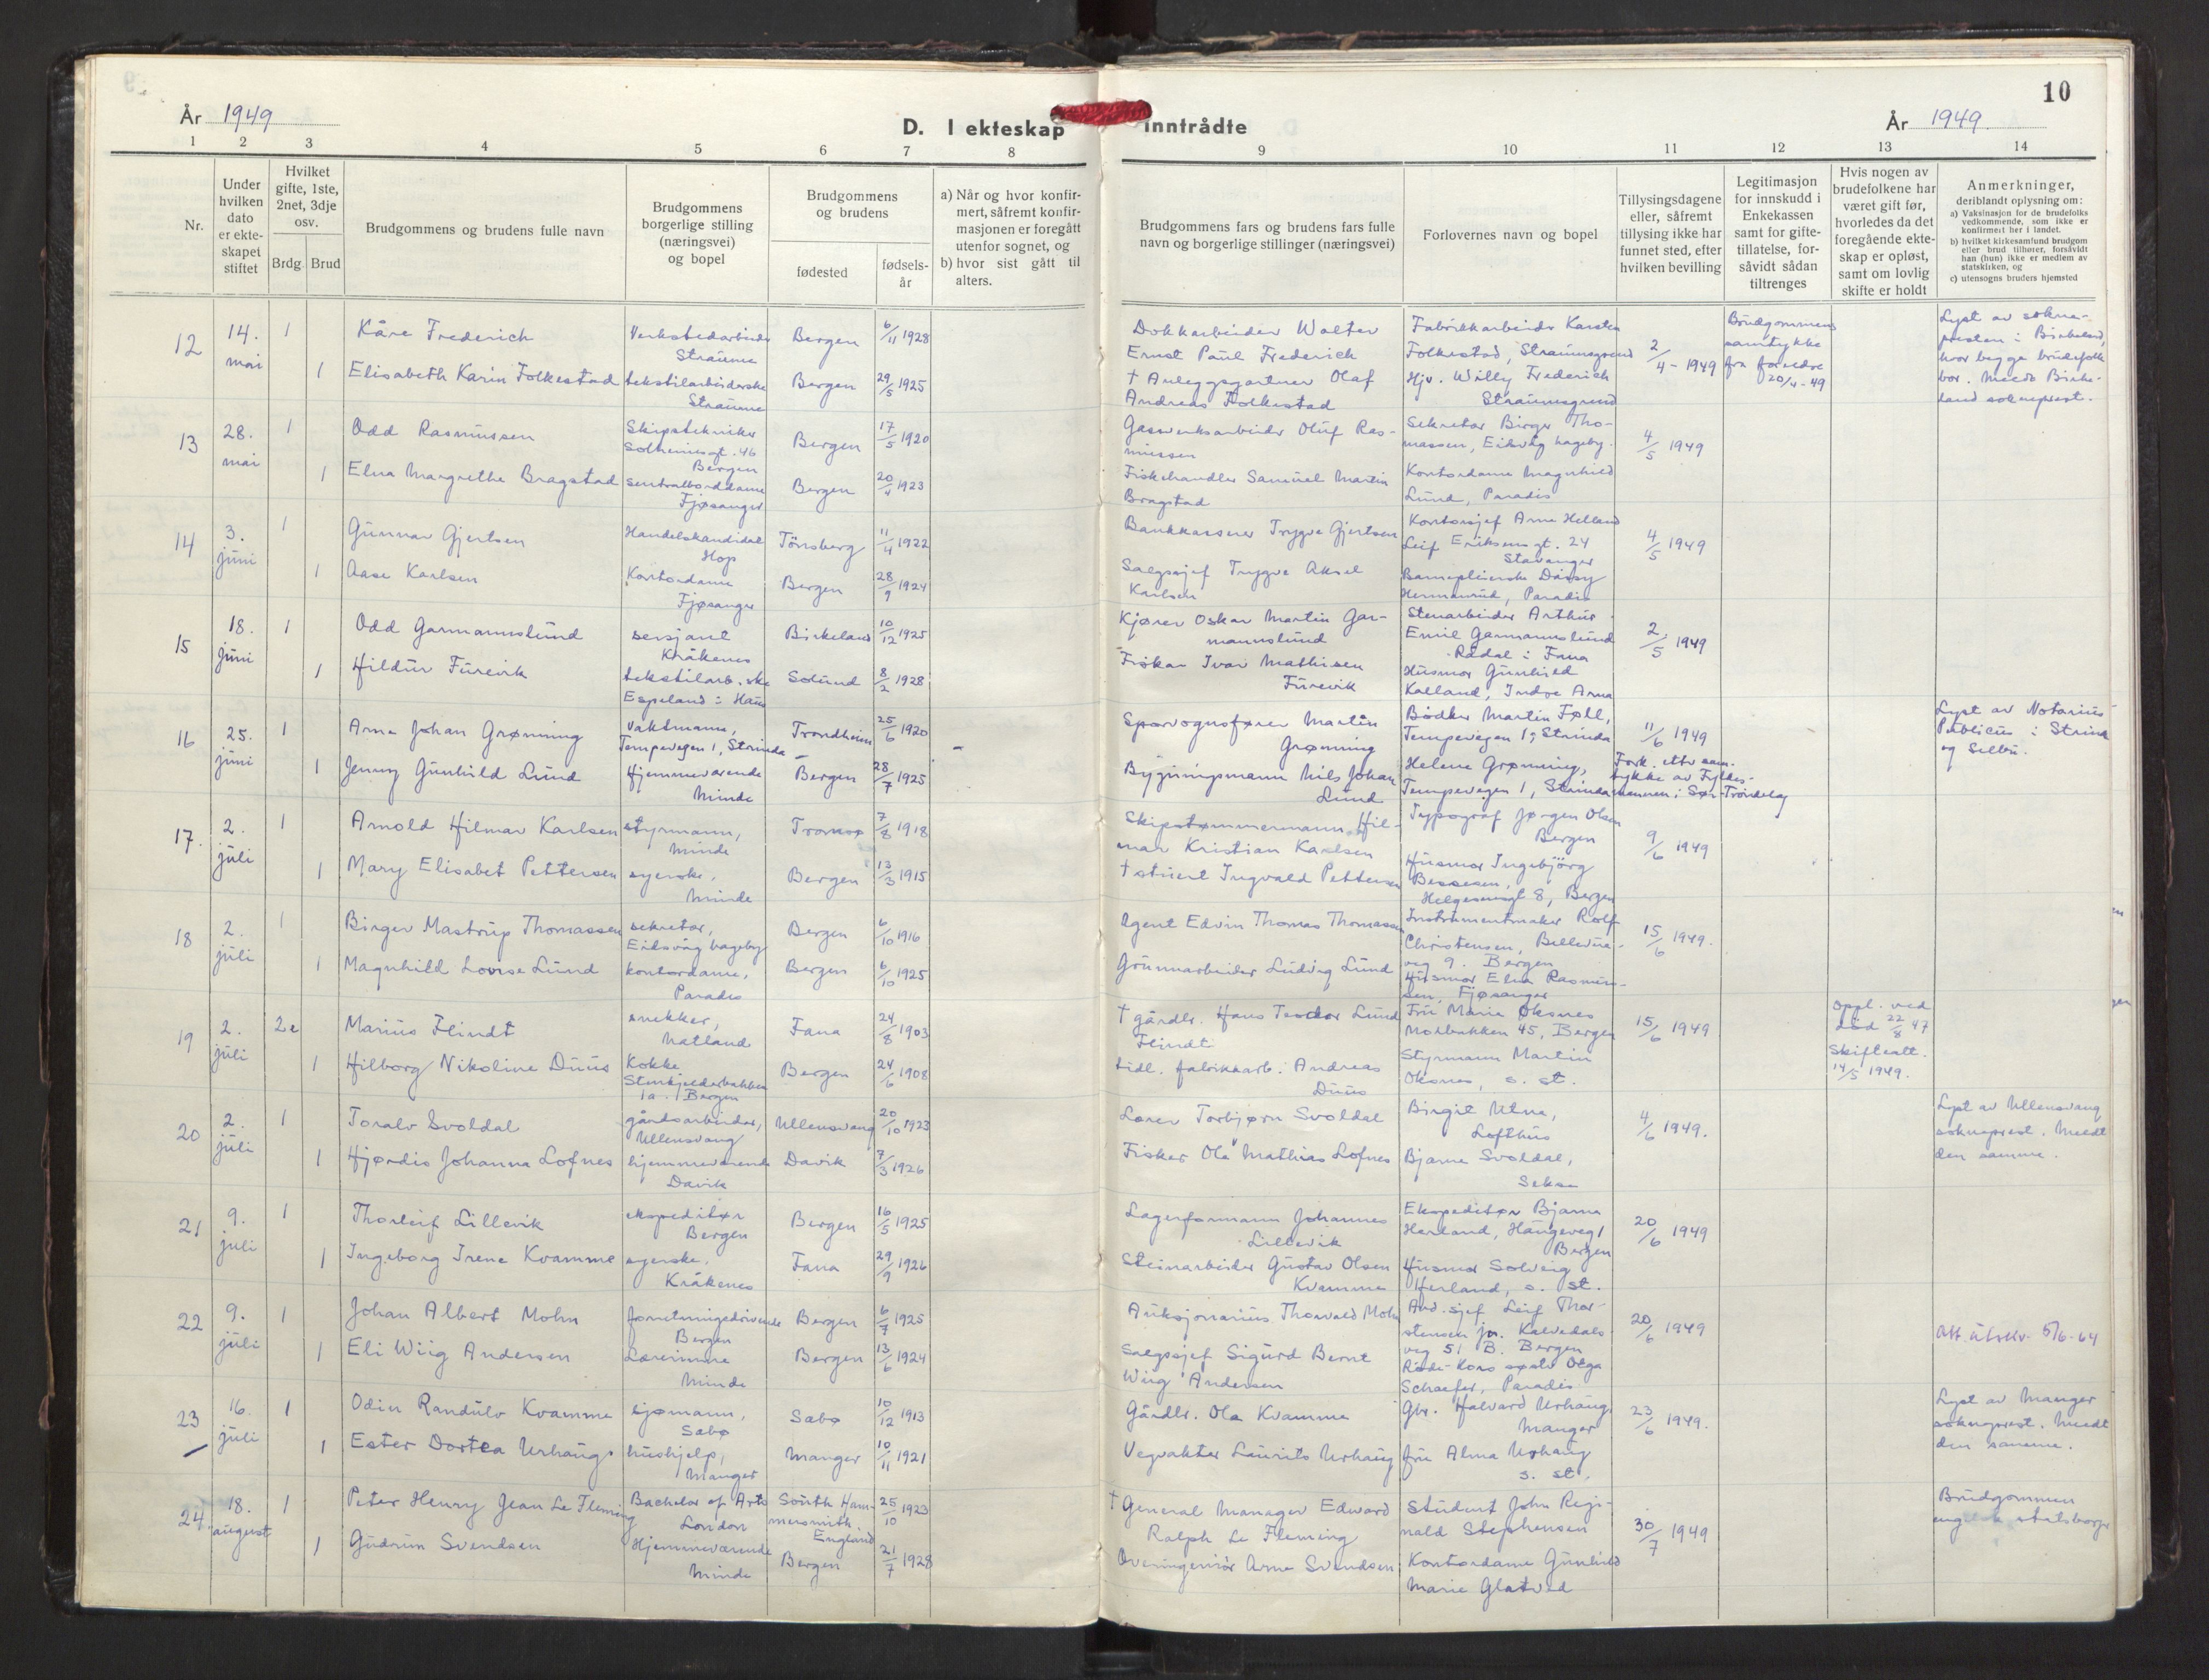 10
År 1949
D. I ekteskap inntrådte
År 1949.
1 2 3 4 5 6 7 8 9 10 11 12 13 14
Nr.
Under hvilken dato er ekte-skapet stiftet
Hvilket gifte, 1ste, 2net, 3dje osv.
Brdg. Brud
Brudgommens og brudens fulle navn
Brudgommens borgerlige stilling (næringsvei) og bopel
Brudgommens og brudens
fødested
fødsels-år
a) Når og hvor konfir-mert, såfremt konfir-masjonen er foregått utenfor sognet, og
b) hvor sist gått til alters.
Brudgommens fars og brudens fars fulle navn og borgerlige stillinger (næringsvei)
Forlovernes navn og bopel
Tillysingsdagene eller, såfremt tillysing ikke har funnet sted, efter hvilken bevilling
Legitimasjon for innskudd i Enkekassen samt for gifte-tillatelse, for-såvidt sådan tiltrenges
Hvis nogen av brudefolkene har været gift før, hvorledes da det foregående ekte-skap er opløst, samt om lovlig skifte er holdt
Anmerkninger, deriblandt oplysning om:
a) Vaksinasjon for de brudefolks vedkommende, som ikke er konfirmert her i landet.
b) hvilket kirkesamfund brudgom eller brud tilhører, forsåvidt han (hun) ikke er medlem av statskirken, og
c) utensogns bruders hjemsted
12 14. mai 1 Kåre Frederich Verkstedarbeider Straume Bergen 6/11 1928
Dokkarbeider Walter Ernst Paul Frederich
Fabrikkarbeider Karsten Folkestad, Straumsgrend
2/4 - 1949
Brudgommens samtykke fra foreldre 20/4-49
Lyst av sokne-presten i Birkeland, hvor begge brudefolk bor. Meldt Birke-land sokneprest.
1 Elisabeth Karin Folkestad tekstilarbeiderske Straume Bergen 29/5 1925
† Anleggsgartner Olaf Andreas Folkestad
Hjv. Willy Frederich Straumsgrend
13 28. mai 1 Odd Rasmussen Skipstekniker Solheimsgt. 46 Bergen Bergen 17/5 1920
Gassverksarbeider Oluf Ras-mussen
Sekretær Birger Tho-massen, Eidsvåg hageby.
4/5 1949
1 Elna Margrethe Bragstad sentralborddame Fjøsanger Bergen 20/4 1923
Fiskehandler Samuel Martin Bragstad
Kontordame Magnhild Lund, Paradis
14 3. juni 1 Gunnar Gjertsen Handelskandidat Hop Tönsberg 11/4 1922
Bankkasserer Trygve Gjertsen
Kontorsjef Arne Helland Leif Eriksens gt. 24 Stavanger
4/5 1949
1 Aase Karlsen Kontordame Fjøsanger Bergen 28/9 1924
Salgssjef Trygve Aksel Karlsen
Barnepleierske Daisy Hermanrud, Paradis
15 18. juni 1 Odd Garmannslund sersjant Kråkenes Birkeland 10/12 1925
Kjører Oskar Martin Gar-mannslund
Stenarbeider Arthur Emil Garmannslund Rådal i Fana
2/5 1949
1 Hildur Furevik tekstilarb.ske Espeland i Haus Solund 8/2 1928
Fiskar Ivar Mathisen Furevik
Husmor Gunhild Kalland, Indre Arna
16 25. juni 1 Arne Johan Grønning Vaktmann, Tempevegen 1, Strinda Trondheim 25/6 1920 -
Sporvognsfører Martin Grønning
Bødker Martin Føhl, Tempevegen 1, Strinda
11/6 1949
Lyst av Notarius Publicus i Strinda og Selbu.
1 Jenny Gunhild Lund Hjemmeværende Minde Bergen 28/7 1925
Bygningsmann Nils Johan Lund
Helene Grønning, Tempevegen 1, Strinda
Fork. etter sam-tykke av Fylkes-mannen i Sør-Tröndelag
17. 2. juli 1 Arnold Hilmar Karlsen styrmann, Minde Tromsø 7/8 1918
Skipstømmermann Hil-mar Kristian Karlsen
Typograf Jørgen Olsen Bergen
9/6 1949
1 Mary Elisabet Pettersen syerske, Minde Bergen 13/3 1915
† stuert Ingvald Pettersen
Husmor Ingebjörg Bessesen, Helgesensgt 8, Bergen
18 2. juli 1 Birger Mastrup Thomassen sekretær, Eidsvåg hageby Bergen 6/10 1916
Agent Edvin Thomas Thomassen
Instrumentmaker Rolf Christensen, Bellevue-veg 9. Bergen
15/6 1949.
1 Magnhild Lovise Lund kontordame, Paradis Bergen 6/10 1925
Grunnarbeider Ludvig Lund
Husmor Elna Rasmus-sen, Fjøsanger
19 2. juli 2e Marius Flindt snekker, Natland Fana 24/8 1903
† gårdbr. Hans Teodor Lund Flindt
Fru Marie Oksnes Morbakken 45, Bergen
15/6 1949
Oppl. ved död 22/8 47 Skifteatt. 14/5 1949.
1 Hilborg Nikoline Duus Kokke Stenkjelderbakken 1a. Bergen Bergen 24/6 1908
tidl. fabrikkarb. Andreas Duus
Styrmann Martin Oksnes, s. st.
20 2. juli 1 Toralv Svoldal gårdsarbeider, Ullensvang Ullensvang 20/10 1923
Lærer Torbjørn Svoldal
Birgit Utne, Lofthus
4/6 1949.
Lyst av Ullensvang sokneprest. Meldt den samme.
1 Hjørdis Johanna Lofnes hjemmeværende Davik Davik 7/3 1926
Fisker Ole Mathias Lofnes
Bjarne Svoldal, Sekse
21 9. juli 1 Thorleif Lillevik ekspeditør Bergen Bergen 16/5 1925
Lagerformann Johannes Lillevik
Ekspeditør Bjarne Herland, Haugeveg 1 Bergen
20/6 1949
1 Ingeborg Irene Kvamme syerske, Kråkenes Fana 29/9 1926
Steinarbeider Gustav Olsen Kvamme
Husmor Solveig Herland, s. st.
22 9. juli 1 Johan Albert Mohn forretningsdrivende Bergen Bergen 6/7 1925
Auksjonarius Thorvald Mohn
Avd. sjef Leif Thor-stensen jr. Kalvedals-veg 51 B. Bergen
20/6 1949
Att. utskr. 5/6-64
1 Eli Wiig Andersen Lærerinne Minde Bergen 13/6 1924
Salgssjef Sigurd Bernt Wiig Andersen
Røde-Kors søster Olga Schaefer, Paradis
23 16. juli 1 Odin Randulv Kvamme sjømann, Sæbø Sæbø 10/12 1913
Gårdbr. Ola Kvamme
Gbr. Halvard Urhaug, Manger
23/6 1949.
Lyst av Manger sokneprest. Meldt den samme.
1 Ester Dortea Urhaug hushjelp, Manger Manger 10/11 1921
Vegvakter Laurits Urhaug
fru Alma Urhaug s. st.
24. 18. august 1 Peter Henry Jean Le Fleming Bachelor of Arts London South Ham-mersmith England 25/10 1923
† General Manager Edward Ralph Le Fleming
Student John Regi-nald Stephensen
30/7 1949
Brudgommen engelsk statsborger
1 Gudrun Svendsen Hjemmeværende Minde Bergen 21/7 1928
Overingeniör Arne Svendsen
Kontordame Gunhild Marie Glatved